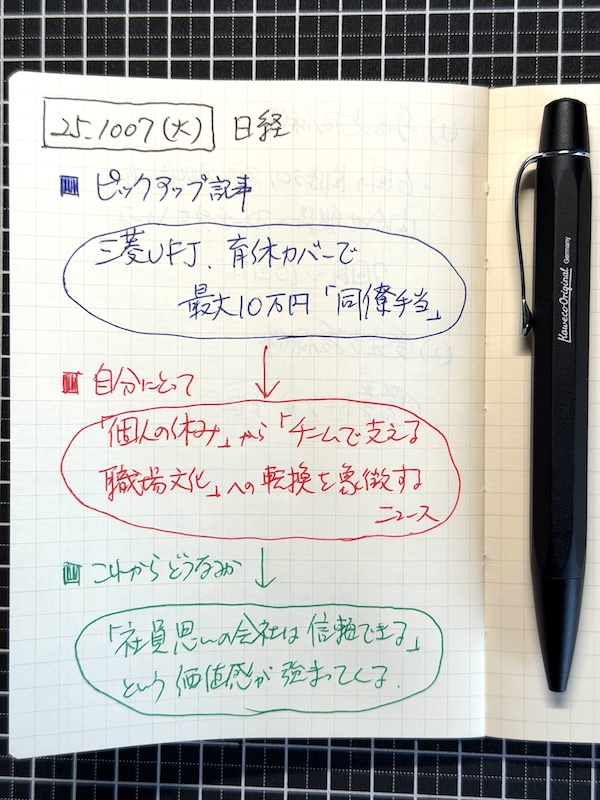 25.1007(火) 日経
■ ピックアップ記事
三菱UFJ、育休カバーで
最大10万円「同僚手当」
■ 自分にとって
「個人の休み」から「チームで支える
職場文化」への転換を象徴する
ニュース
■ これからどうなるか
「社員思いの会社は信頼できる」
という価値感が強まってくる.
Kaweco-Original Germany